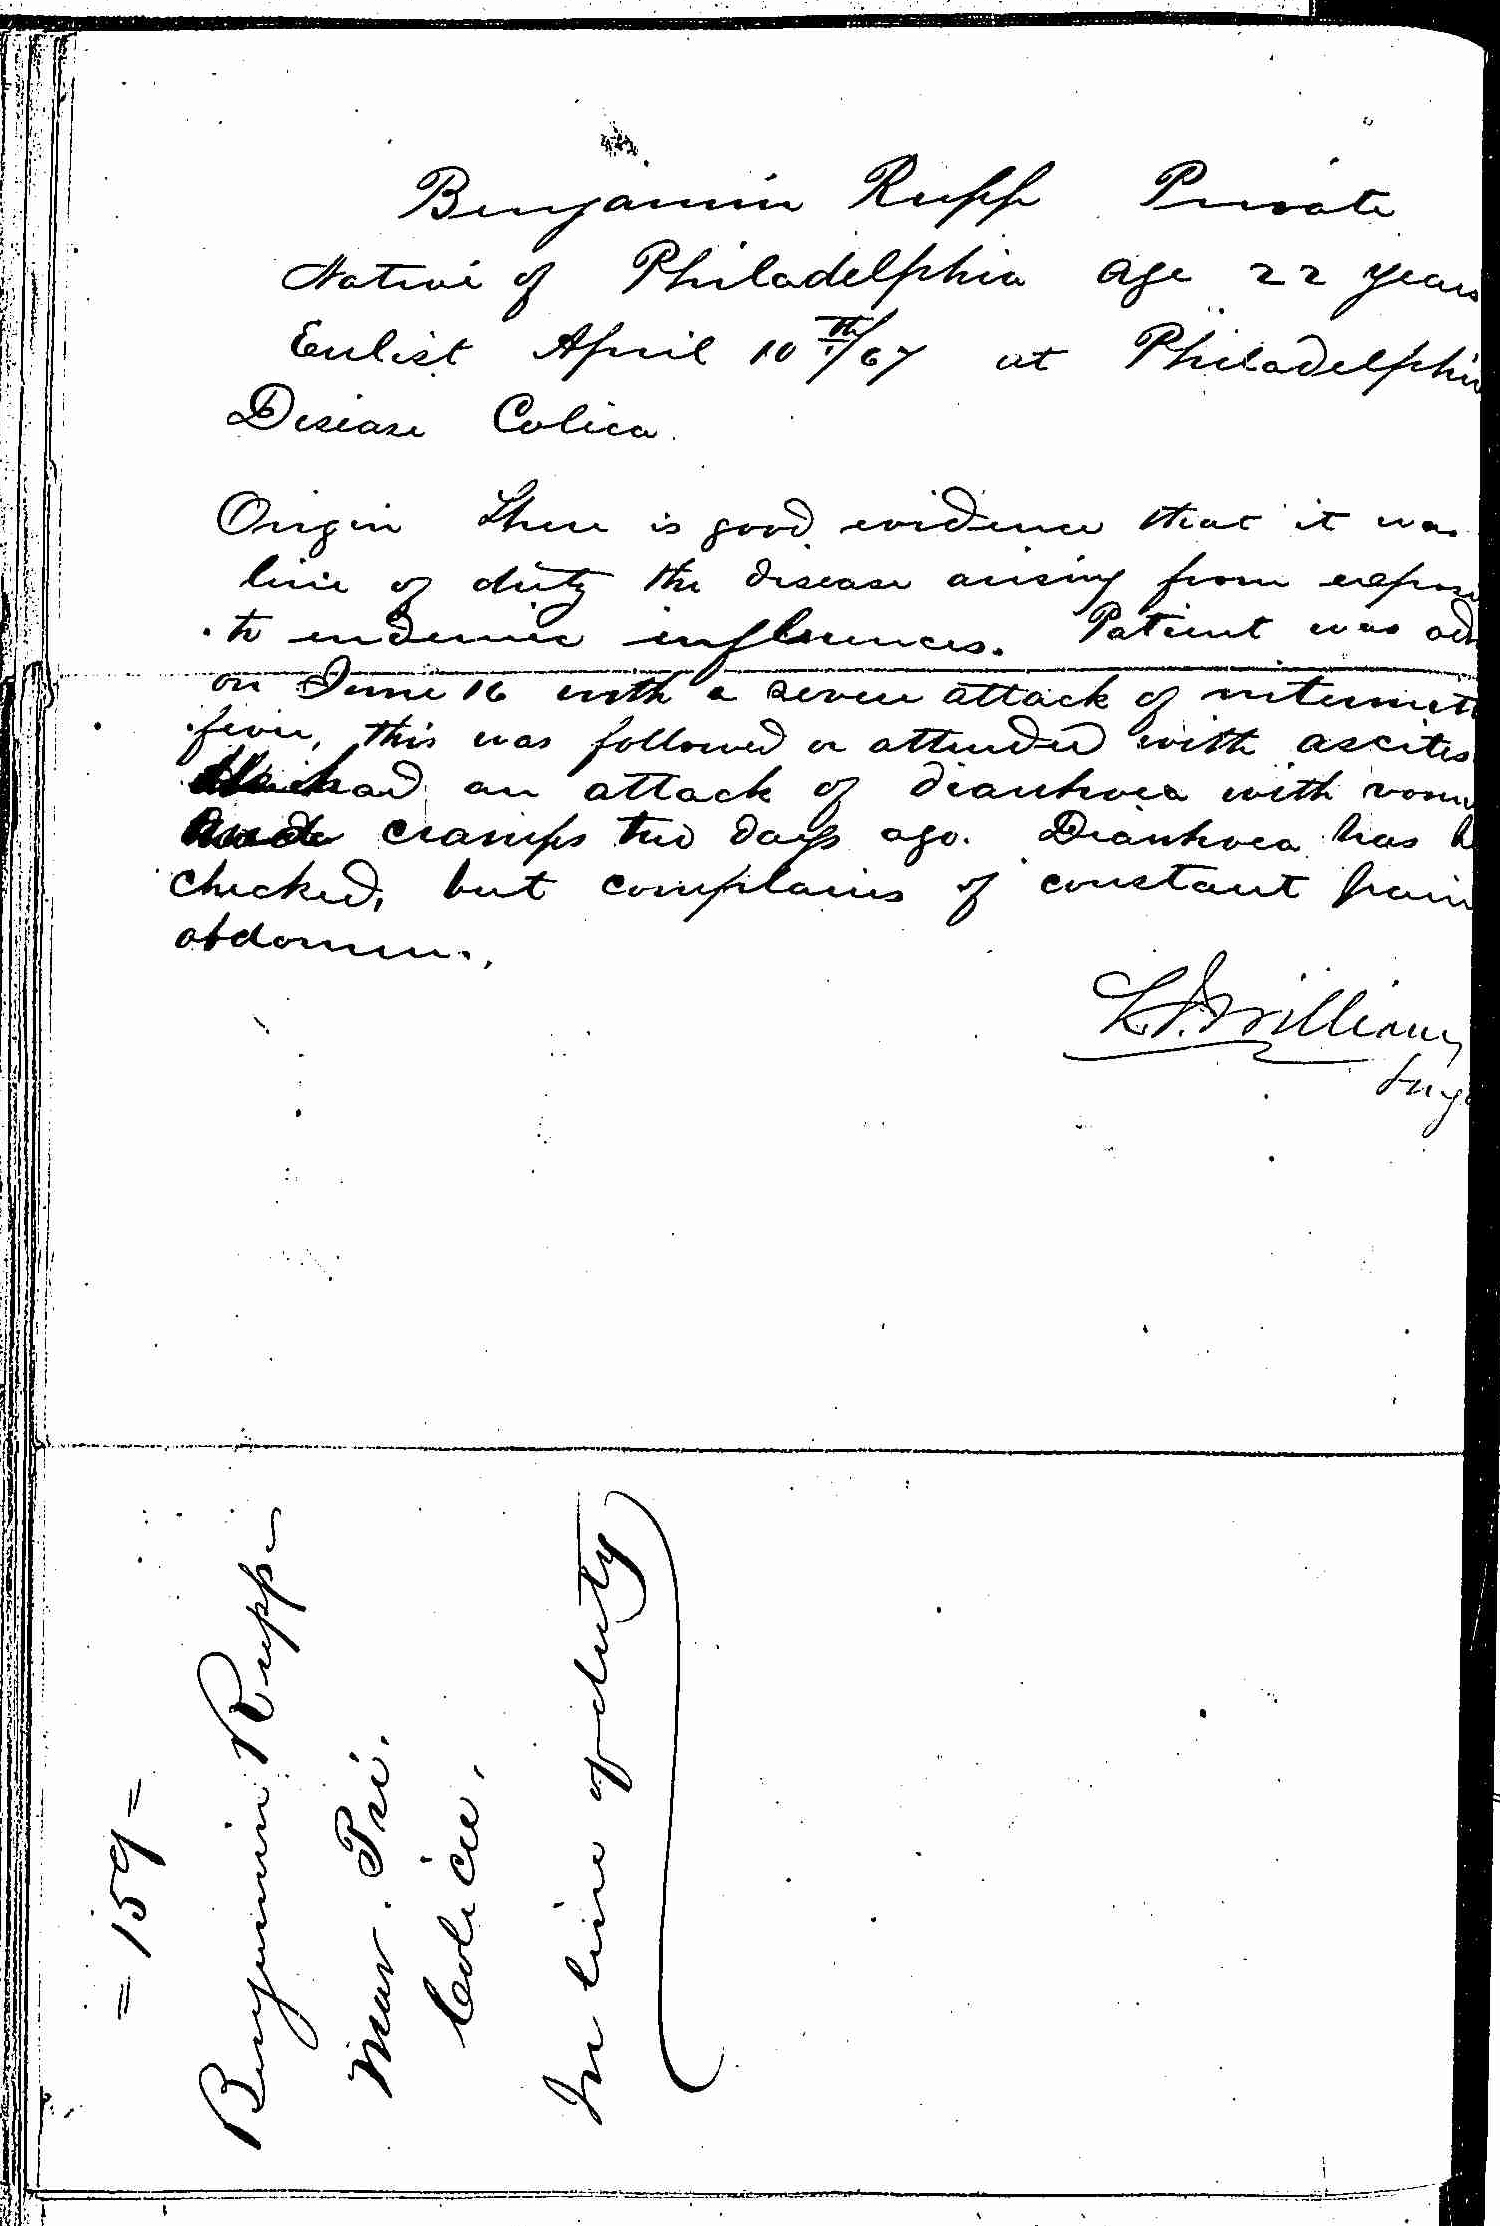 Benjamin Rupp Private
Native of Philadelphia age 22 years
Enlist April 10th/67 at Philadelphia
Disease Colica.
Origin There is good evidence that it was
line of duty the disease arising from expos
to endemic influences. Patient was ad
on June 16 with a severe attack of intermit
fever, this was followed or attended with ascites
had an attack of diarrhoea with vom
cramps two days ago. Diarrhoea has b
checked, but complains of constant pain
abdomen.
L. J. Williams
Surg
= 159 =
Benjamin Rupp
Mar. Pri.
Colica.
In line of duty